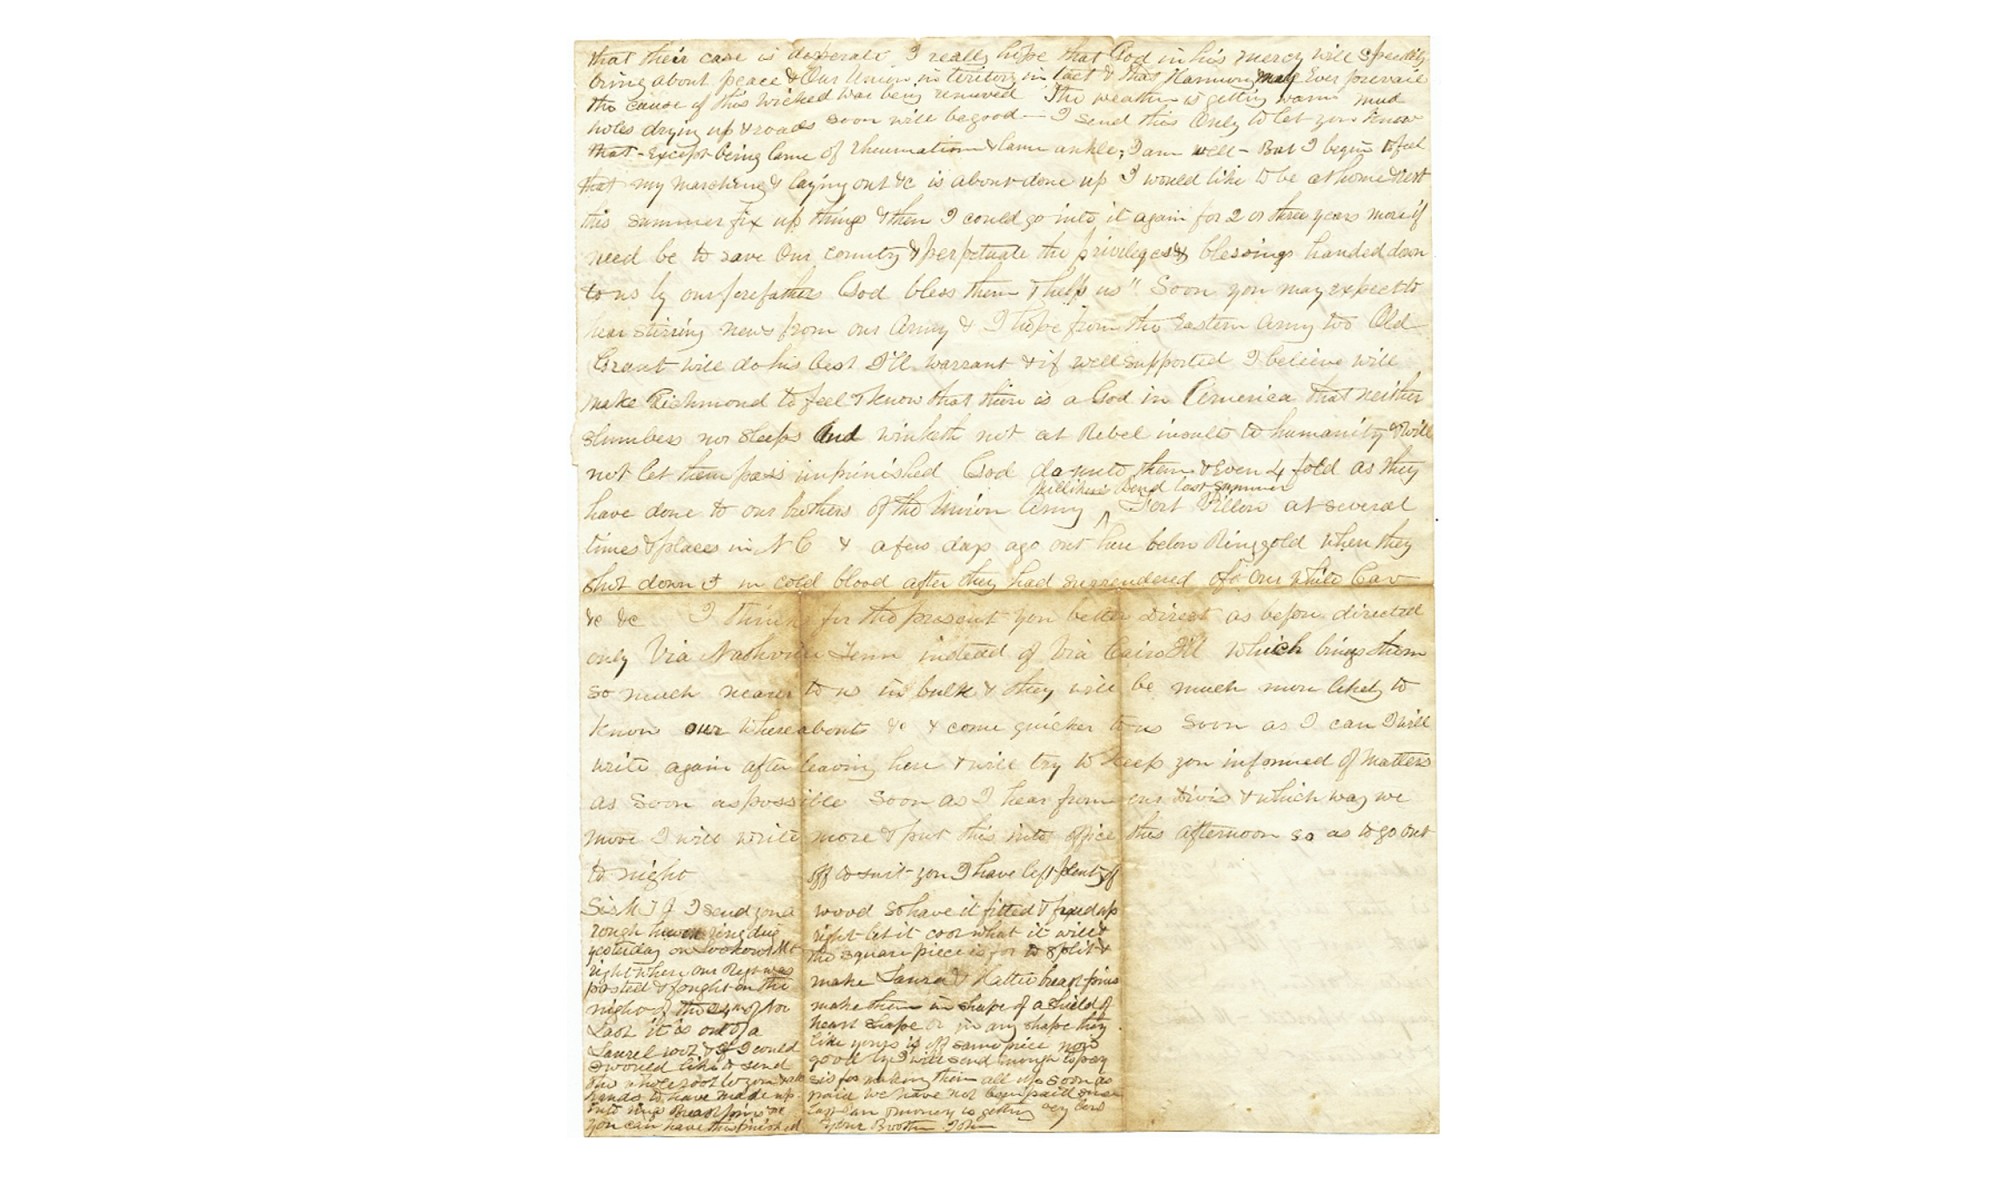 that their case is desperate I really hope that God in his mercy will speedily
bring about peace & Our Union in teritory in tact & that Harmony may Ever prevail
the cause of this wicked war being removed The weather is getting warm mud
holes drying up & roads soon will be good — I send this Only to let you know
that - Except being lame of rheumatism & lame ankle, I am well - But I begin to feel
that my marching & laying out &c is about done up I would like to be at home & rest
this summer fix up things & then I could go into it again for 2 or three years more if
need be to save Our country & perpetuate the privileges & blessings handed down
to us by our forefathers God bless them & help us" Soon you may expect to
hear stirring news from our Army & I hope from the Eastern Army too Old
Grant will do his best I'll warrant & if well supported I believe will
make Richmond to feel & know that there is a God in America that neither
slumbers nor sleeps And winketh not at Rebel insults to humanity & will
not let them pass unpunished God do unto them & Even 4 fold as they
Millikens Bend last summer
have done to our brothers of the Union Army ^ Fort Pillow at several
times & places in N C & a few days ago out here below Ringgold when they
shot down in cold blood after they had surrendered of Our white Cav
&c &c I think for the present you better direct as before directed
only Via Nashville Tenn instead of Via Cairo Ill which brings them
so much nearer to us in bulk & they will be much more likely to
know our whereabouts &c & come quicker to us Soon as I can I will
write again after leaving here & will try to keep you informed of Matters
as Soon as possible Soon as I hear from our Divis & which way we
move I will write more & put this into office this afternoon so as to go out
to night
I send you a
rough hewn ring dug
yesterday on Lookout Mt
right where our Regt was
posted & fought on the
night of the 24th of Nov
Last it is out of a
Laurel root & If I could
I would like to send
the whole root to you
hands to have made up
into rings Breast pins &c
you can have this finished
off to suit you I have left plenty of
wood so have it fitted & fixed up
right let it cost what it will &
the square piece is for to split &
make Laura & Hattie breast pins
make them in shape of a shield or
heart shape or in any shape they
like yours is of same piece now
good by I will send enough to pay
sis for making them all up soon as
paid we have not been paid since
last Jan & money is getting very
Your Brother John